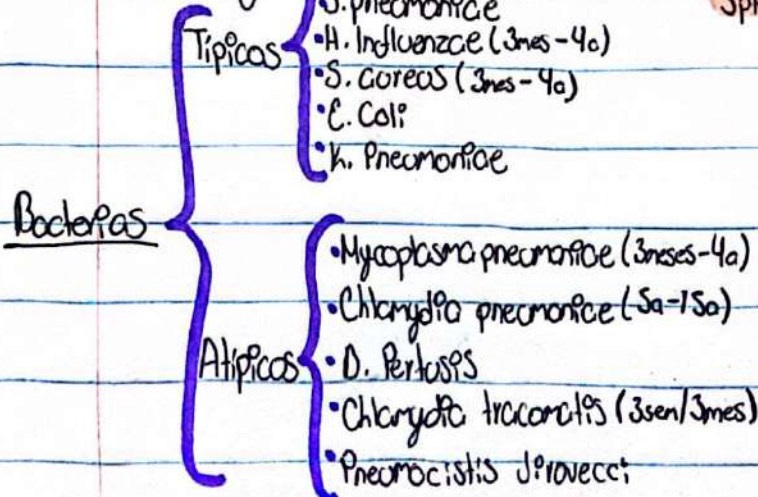 S. pneumoniae
Típicos
• H. Influenzae (3mes-4a)
• S. aureos (3mes-4a)
• E. Coli
• K. Pneumoniae
Bacterias
• Mycoplasma pneumoniae (3meses-4a)
• Chlamydia pneumoniae (5a-15a)
Atípicos
• D. Pertusis
• Chlamydia tracomatis (3sem/3mes)
• Pneumocistis Jirovecci